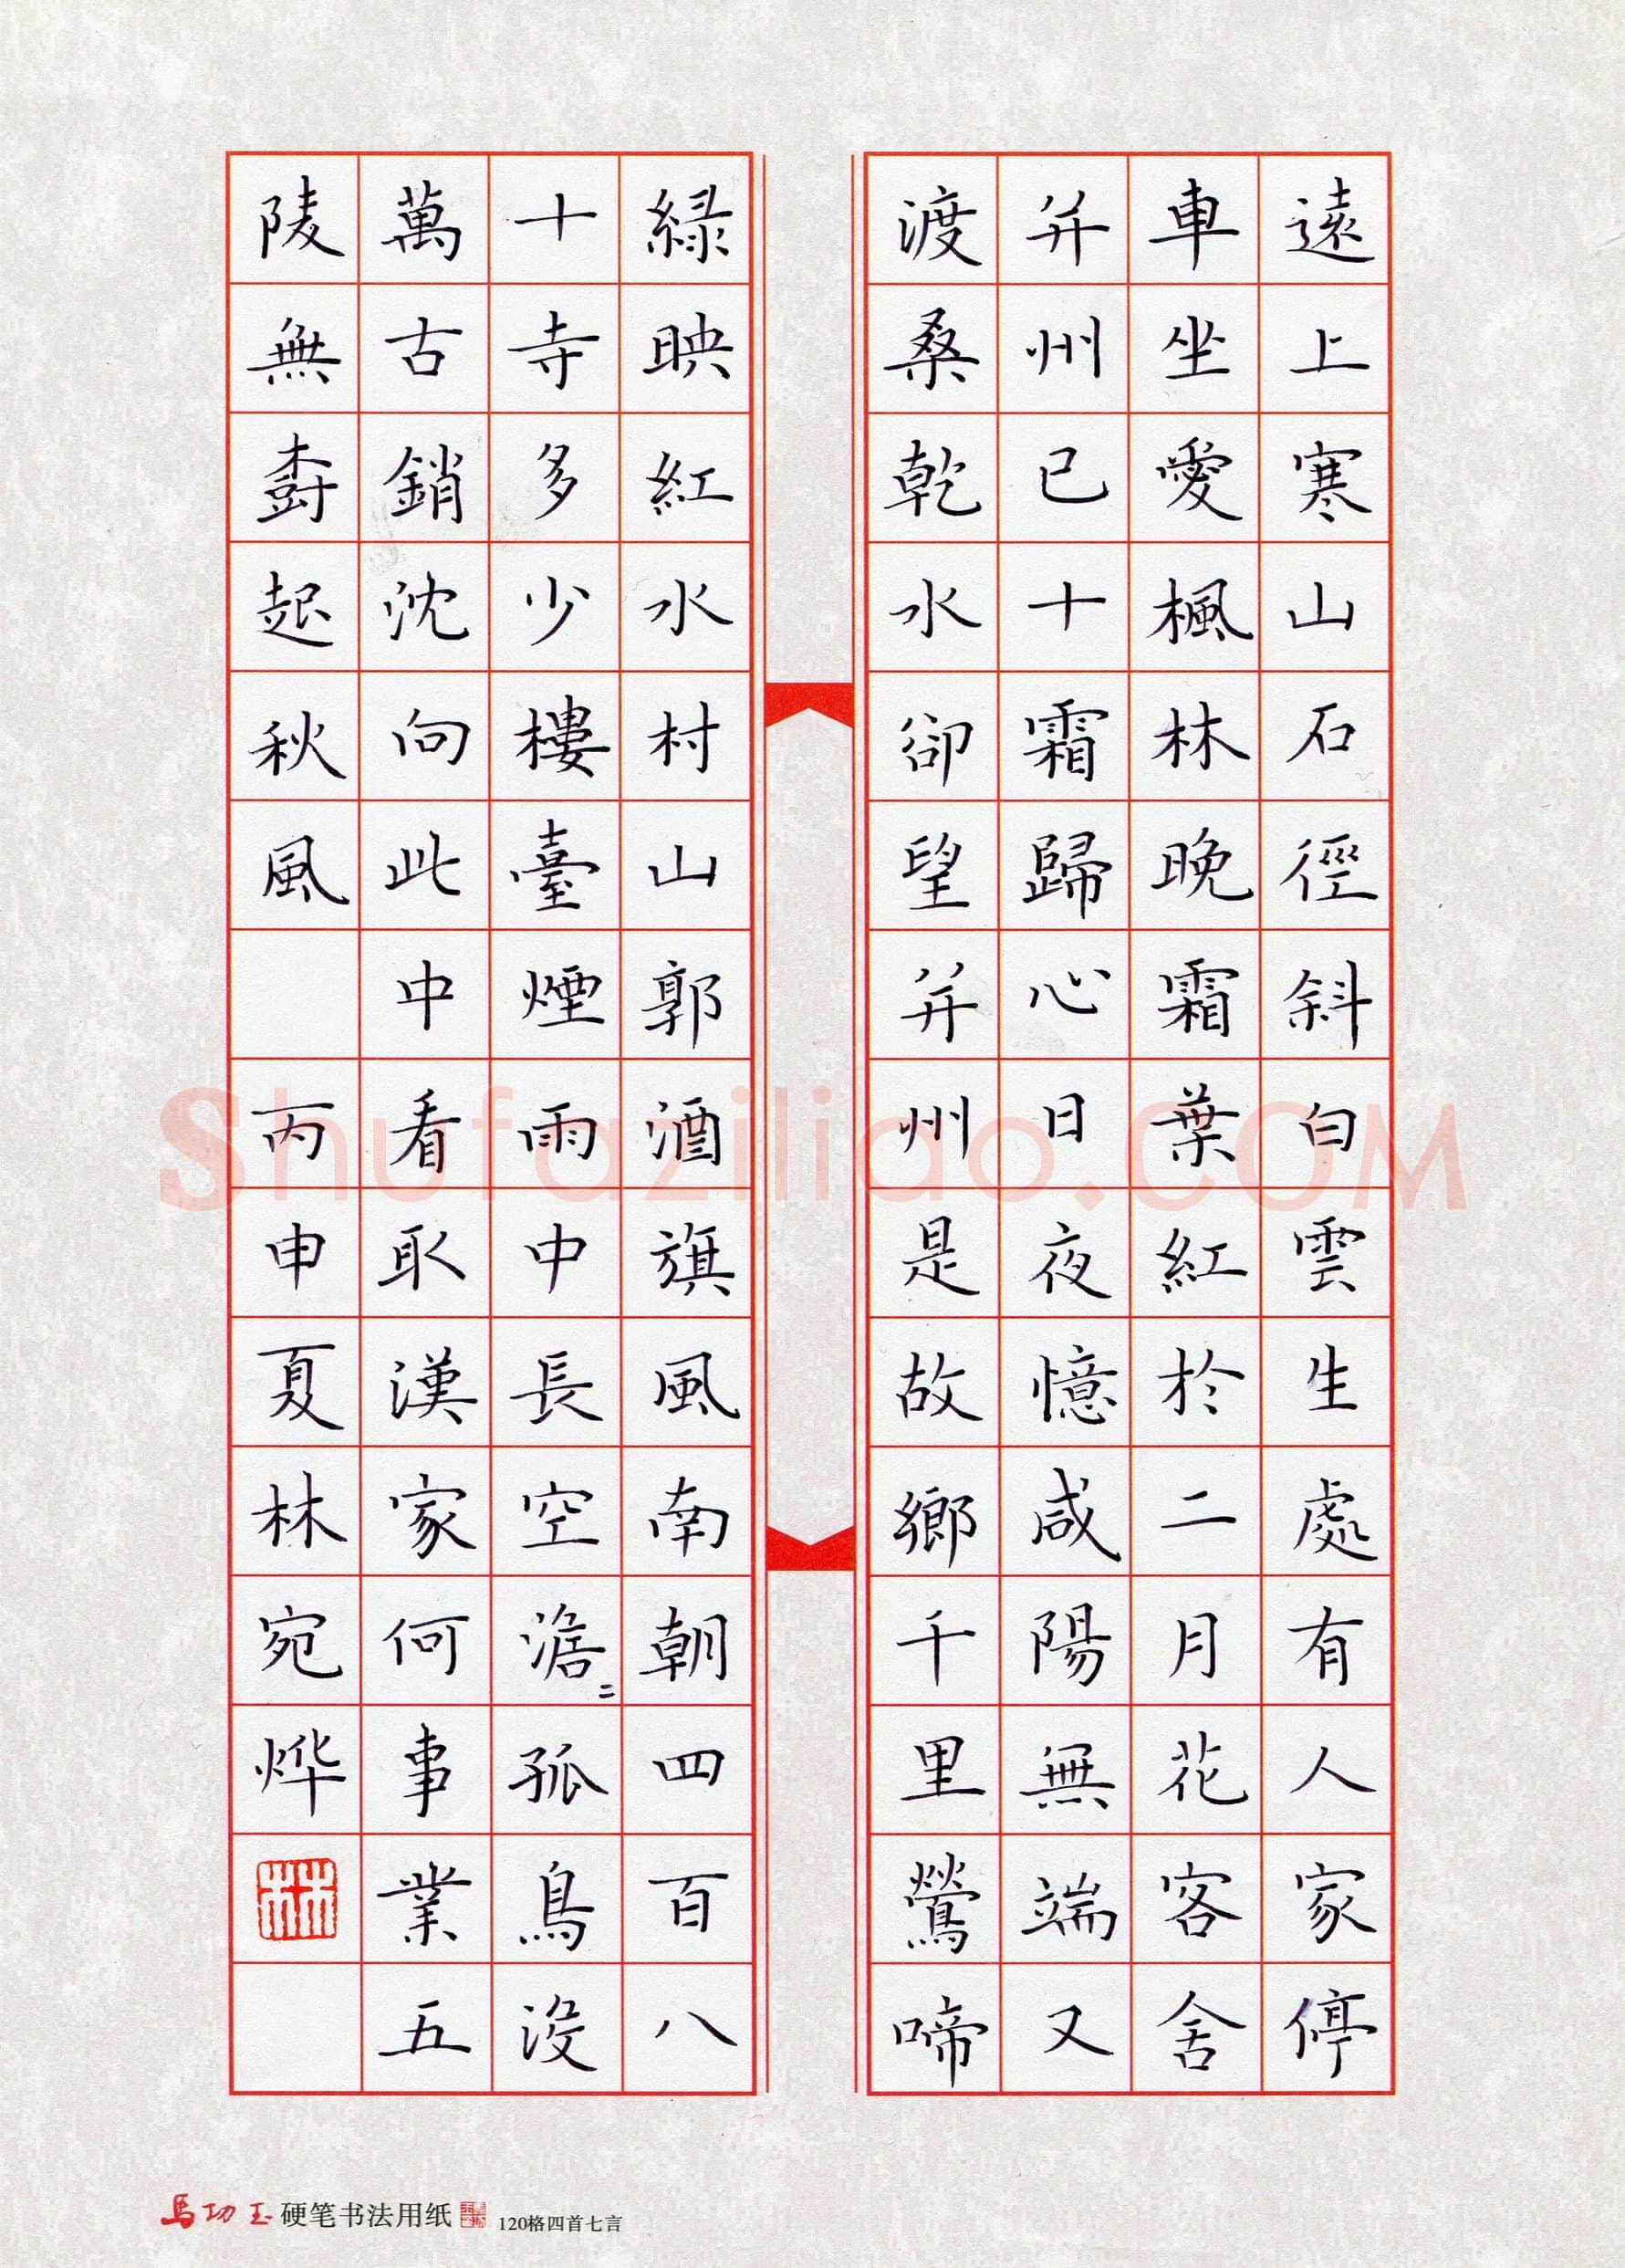 遠上寒山石徑斜白雲生處有人家停
車坐愛楓林晚霜葉紅於二月花客舍
并州已十霜歸心日夜憶咸陽無端又
渡桑乾水卻望并州是故鄉千里鶯啼
緑映紅水村山郭酒旗風南朝四百八
十寺多少樓臺煙雨中長空澹〻孤鳥没
萬古銷沈向此中看取漢家何事業五
陵無樹起秋風 丙申夏林宛烨
林
Shufaziliao.COM
馬功玉 硬笔书法用纸 120格四首七言